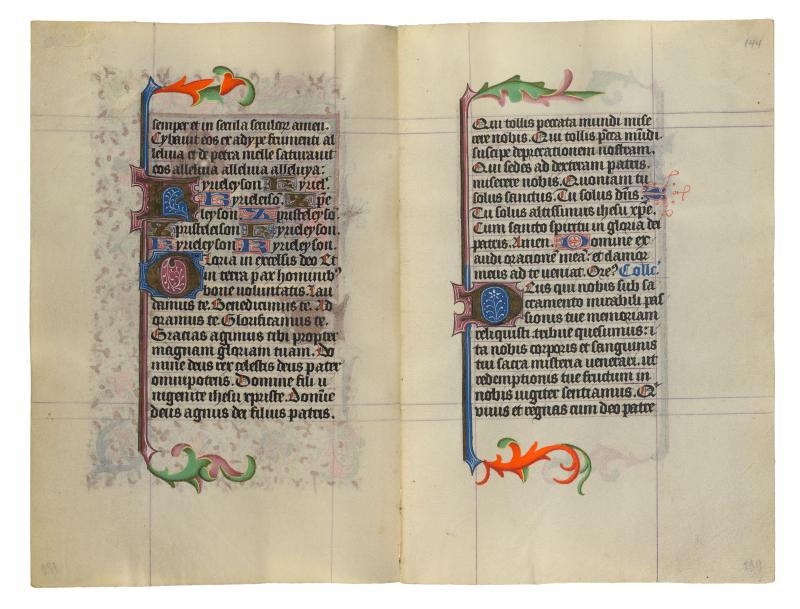 semper et in secula seculoꝝ amen.
Cybauit eos ex adype frumenti al
leluia et de petra melle saturauit
eos alleluia alleluia alleluya.
Kyrieleyson. Kyriel'.
Kyrieleiso. Xpe
leyson. Xpristeleyso.
Xpristeleison. Kyrieleyson.
Kyrieleyson. Kyrieleyson.
Gloria in excelsis deo Et
in terra pax hominibꝰ
bone uoluntatis. Lau
damus te. Benedicimus te. Ad
oramus te. Glorificamus te.
Gracias agimus tibi propter
magnam gloriam tuam. Do
mine deus rex celestis deus pater
omnipotens. Domine fili u
nigenite ihesu xpriste. Domīe
deus agnus dei filius patris.
144
Qui tollis peccata mundi mise
rere nobis. Qui tollis pc̄ta mūdi
suscipe deprecationem nostram.
Qui sedes ad dexteram patris.
miserere nobis. Quoniam tu
solus sanctus. Tu solus dn̄s.
Tu solus altissimus ihesu xp̄e.
Cum sancto spiritu in gloria dei
patris. Amen. Domine ex
audi orationē meā. et clamor
meus ad te ueniat. Ore? Collc̄.
Deus qui nobis sub sa
cramento mirabili pas
sionis tue memoriam
reliquisti. tribue quesumus: i
ta nobis corporis et sanguinis
tui sacra misteria uenerari. ut
redemptionis tue fructum in
nobis iugiter sentiamus. Q̄
uiuis et regnas cum deo patre